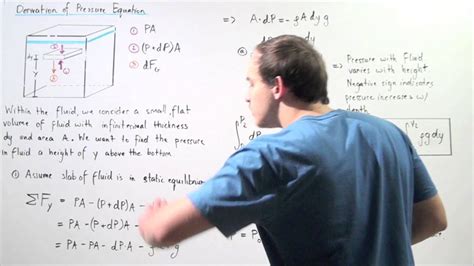 Derivation of Pressure Equation
① PA
② (P+dP)A
③ dF_G
dy
y
Within the fluid, we consider a small, flat
volume of fluid with infinitesimal thickness
dy and area A. We want to find the pressure
in fluid a height of y above the bottom
① Assume slab of fluid is in static equilibrium
ΣFy = PA - (P+dP)A -
= PA - (P+dP)A -
= PA - PA - dP·A - g
=> A·dP = -ρAdyg
Pressure with Fluid
varies with height
Negative sign indicates
pressure increases w/
depth
ρgdy